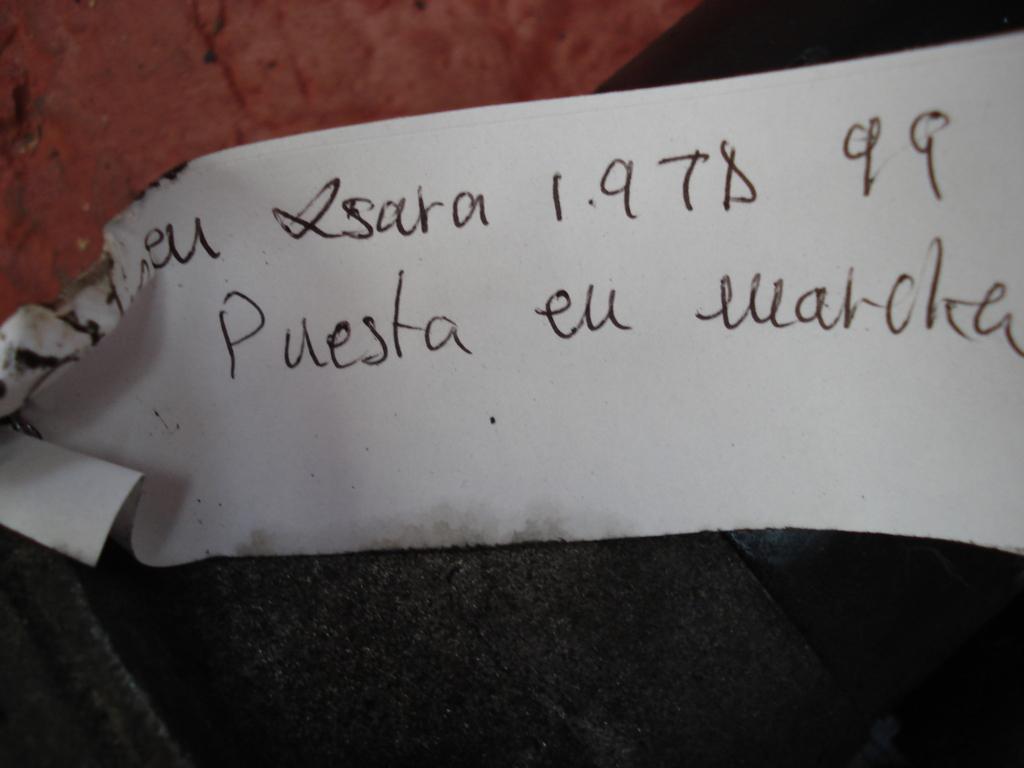 en Xsara 1.9 TD 99
Puesta en marcha